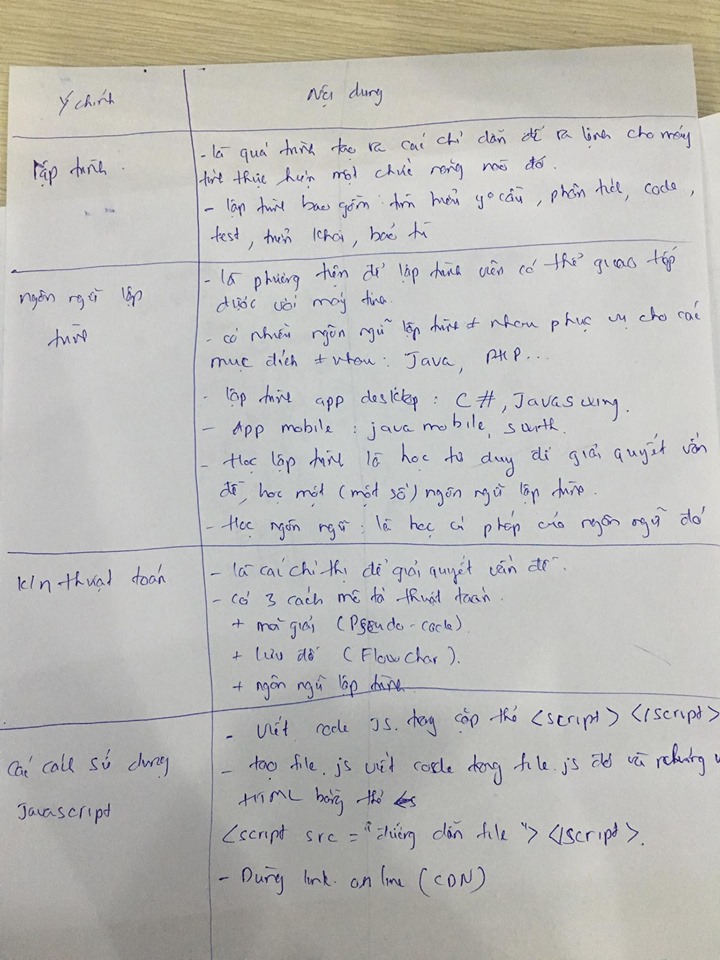 Ý chính
Nội dung
lập trình.
- là quá trình tạo ra các chỉ dẫn để ra lệnh cho máy
tính thực hiện một chức năng nào đó.
- lập trình bao gồm: tìm hiểu yº cầu, phân tích, code,
test, triển khai, bảo trì
ngôn ngữ lập
trình
- là phương tiện để lập trình viên có thể giao tiếp
được với máy tính.
- có nhiều ngôn ngữ lập trình ≠ nhau phục vụ cho các
mục đích ≠ nhau: Java, PHP...
- lập trình app desktop: C#, Java swing.
- App mobile: java mobile,
- Học lập trình là học tư duy để giải quyết vấn
đề, học một (một số) ngôn ngữ lập trình.
- Học ngôn ngữ: là học cú pháp của ngôn ngữ đó
k/n thuật toán
- là các chỉ thị để giải quyết vấn đề.
- có 3 cách mô tả thuật toán.
+ mã giải (Pseudo-code)
+ Lưu đồ (FlowChar).
+ ngôn ngữ lập trình
Các cách sử dụng
Javascript
- viết code JS. trong cặp thẻ <script> </script>
- tạo file.js viết code trong file.js đó và nhúng v
HTML bằng thẻ
<script src = "đường dẫn file"> </script>.
- Dùng link online (CDN)